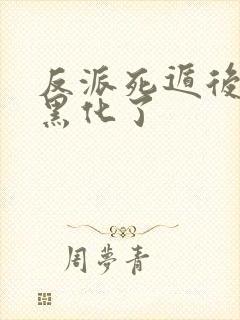 反派死遁後
黑化了
周夢青